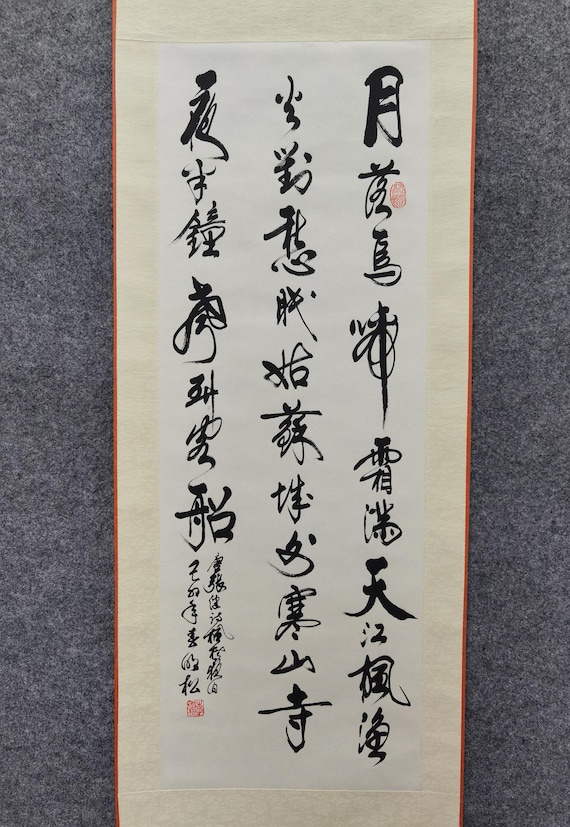 月落烏啼霜滿天江楓漁
火對愁眠姑蘇城外寒山寺
夜半鐘聲到客船
唐張繼詩楓橋夜泊
己卯年春明松